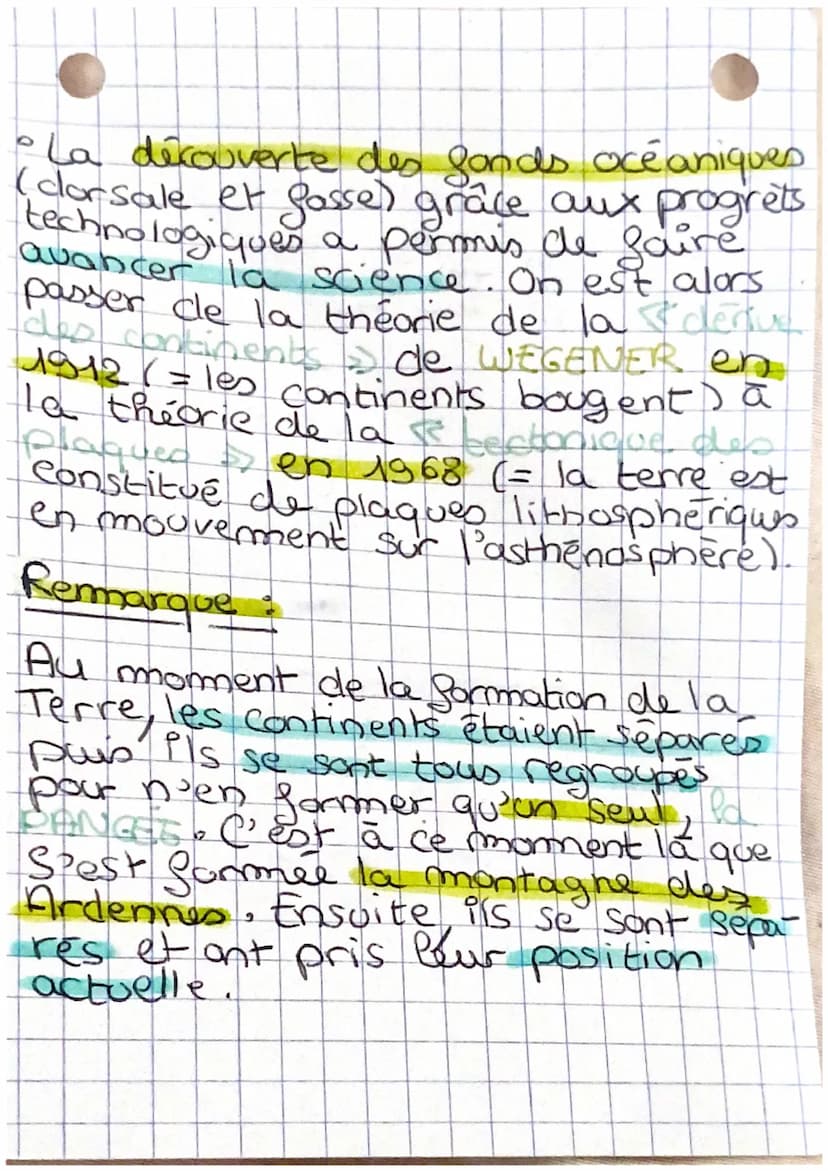 ° La découverte des fonds océaniques
(dorsale et fosse) grâce aux progrèts
technologiques a permis de faire
avancer la science. On est alors
passer de la théorie de la « dérive
des continents » de WEGENER en
1912 (= les continents bougent) à
la théorie de la « tectonique des
plaques » en 1968 (= la terre est
constitué de plaques lithosphériqus
en mouvement sur l'asthénosphère).
Remarque :
Au moment de la formation de la
Terre, les continents étaient séparés
puis ils se sont tous regroupés
pour n'en former qu'un seul, la
PANGÉE. C'est à ce moment là que
s'est formée la montagne des
Ardennes. Ensuite ils se sont sépa-
rés et ont pris leur position
actuelle.